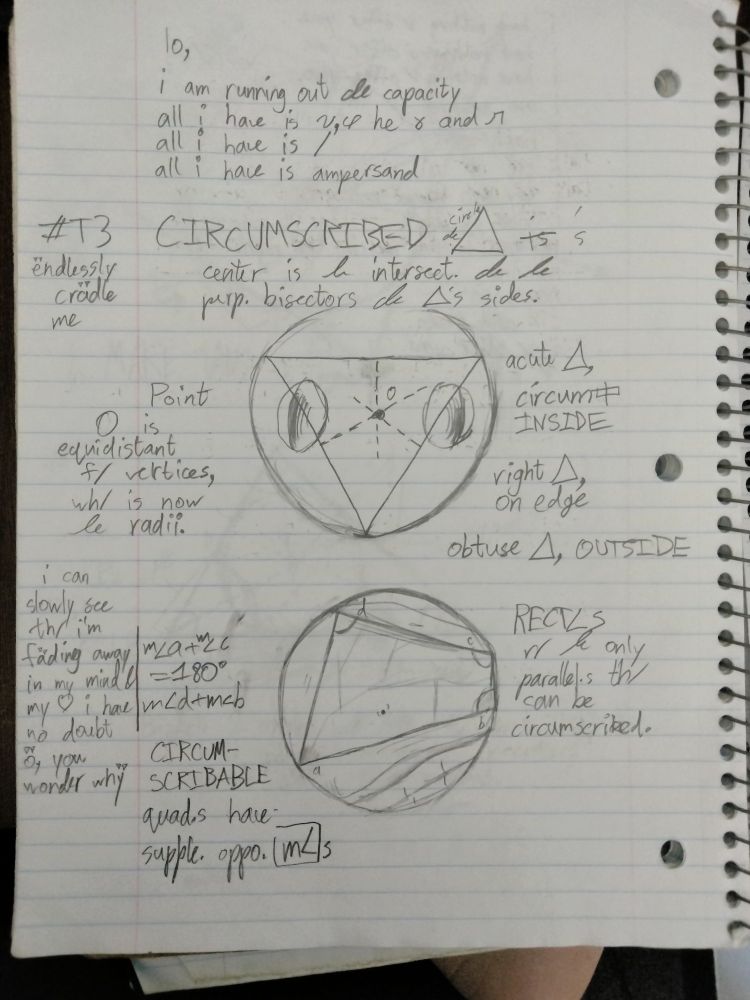 lo,
i am running out de capacity
all i have is v,φ he r and r
all i have is /
all i have is ampersand
#T3 CIRCUMSCRIBED circle de △ is 's
center is le intersect. de le
perp. bisectors de △'s sides.
ëndlessly
cradle
me
Point
O is
equidistant
f/ vertices,
wh/ is now
le radii.
O
acute △,
circum中
INSIDE
right △,
on edge
obtuse △, OUTSIDE
i can
slowly see
th/ i'm
fäding away
in my mind &
my ♡ i have
no doubt
ö, you
wonder whÿ
m∠a+m∠c
=180°
m∠d+m∠b
CIRCUM-
SCRIBABLE
quad.s have
supple. oppo. m∠s
d
c
b
a
RECT∠s
r/ le only
parallel.s th/
can be
circumscribed.